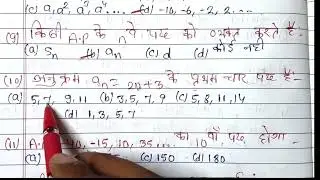 (c) a, a², a³, a⁴.... (d) -10, -6, -2, 2.....
(9) किसी A.P के n वें पद को व्यक्त करते हैं-
(a) Sn (b) an (c) d (d) कोई नहीं
(10) अनुक्रम an = 2n+3 के प्रथम चार पद हैं-
(a) 5, 7, 9, 11 (b) 3, 5, 7, 9 (c) 5, 8, 11, 14
(d) 1, 3, 5, 7
(11) A.P -15, 10, 35... का 10 वाँ पद होगा-
(c) 150 (d) 180